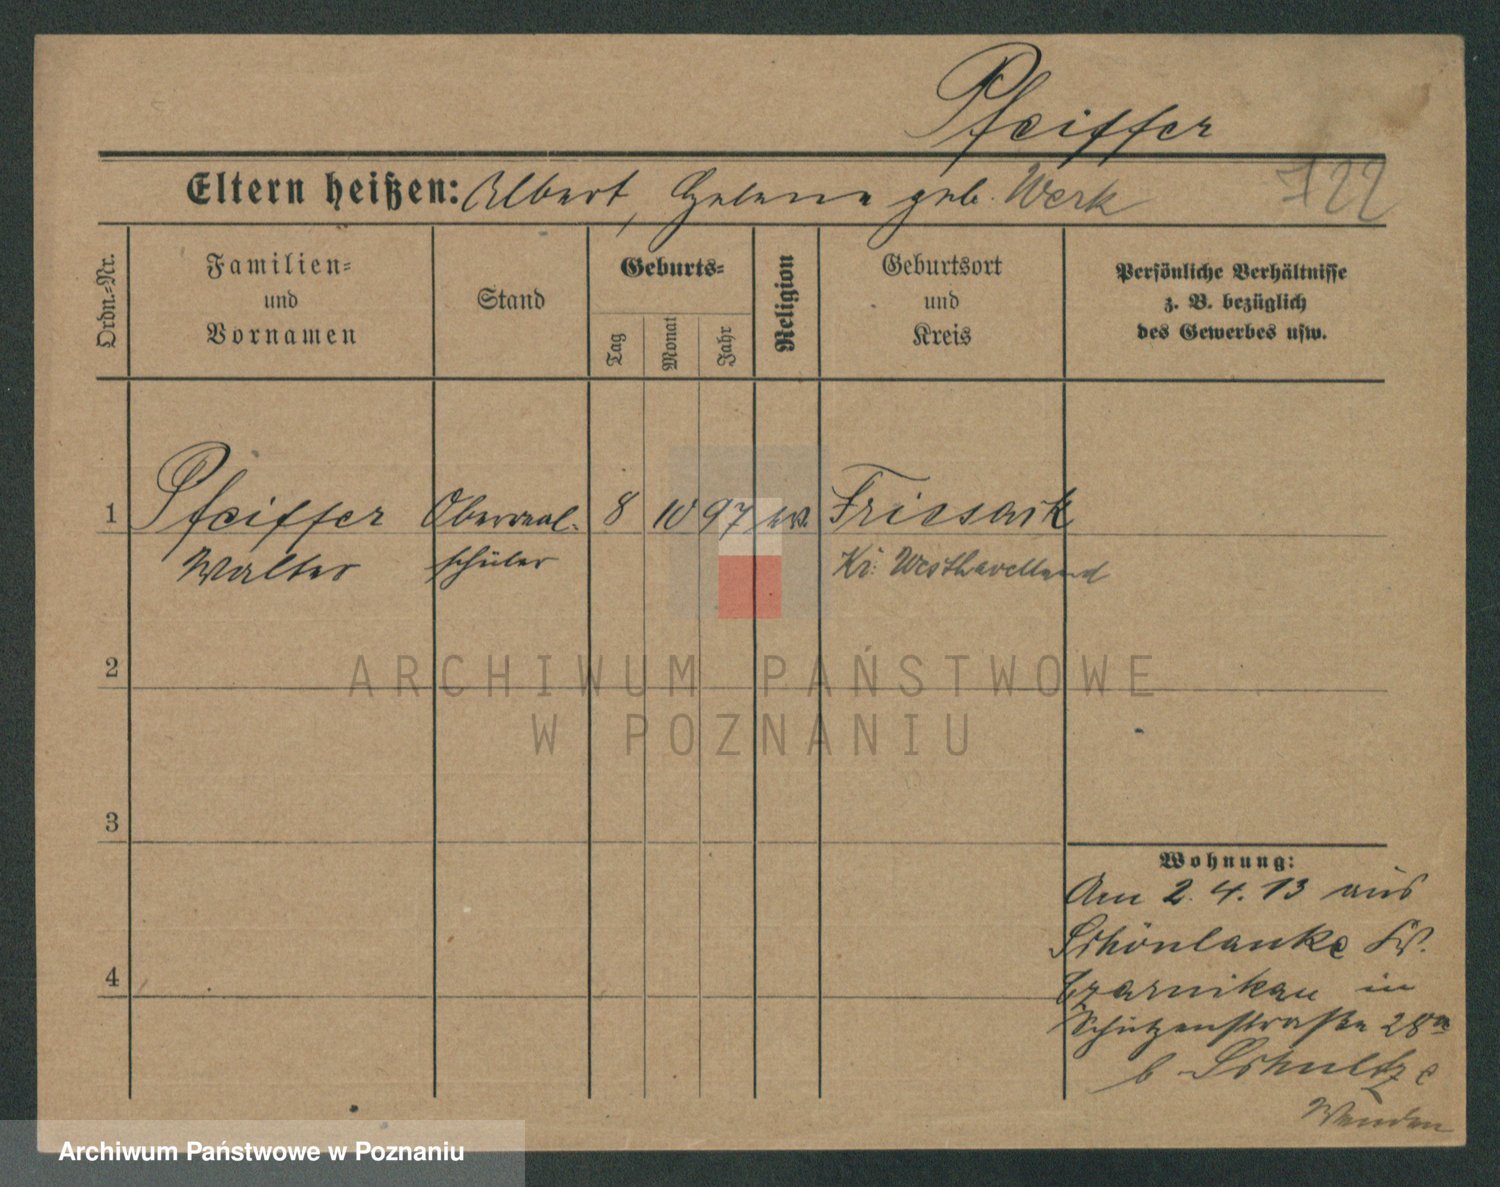 Pfeiffer
Eltern heißen: Albert, Helene geb. Werk
122
Ordn.-Nr.
Familien-
und
Vornamen
Stand
Geburts-
Tag
Monat
Jahr
Religion
Geburtsort
und
Kreis
Persönliche Verhältnisse
z. B. bezüglich
des Gewerbes usw.
1 Pfeiffer Oberreal- 8 10 97 ev. Friesack
Walter schüler Kr. Westhavelland
2
3
4
Wohnung:
Am 2.4.13 aus
Schönlanke Kr.
Czarnikau in
Schützenstraße 28a
b Schultze
Wenden
ARCHIWUM PAŃSTWOWE
W POZNANIU
Archiwum Państwowe w Poznaniu